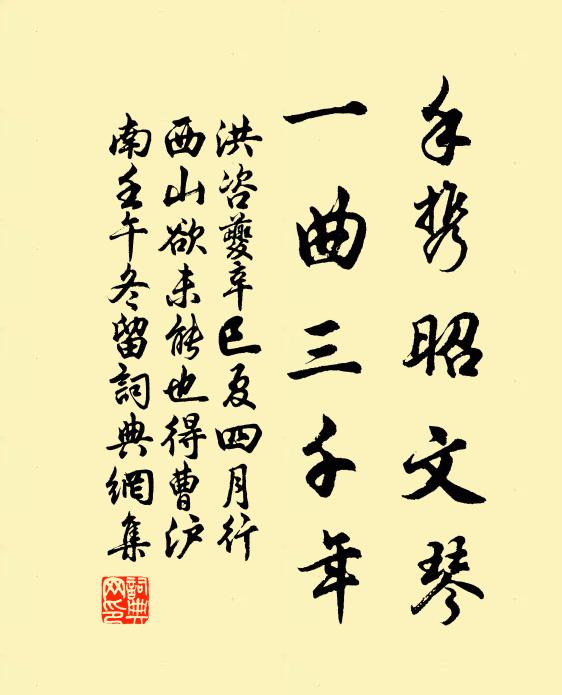 手携昭文琴
一曲三千年
洪咨夔辛巳夏四月行
西山欲未能也得曹泸
南壬午冬留詞典網集
詞典网印